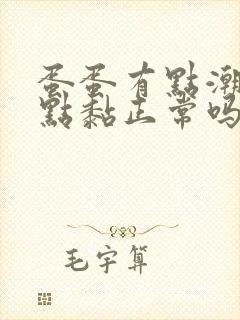 蛋蛋有點潮
點黏正常吗
毛宇算